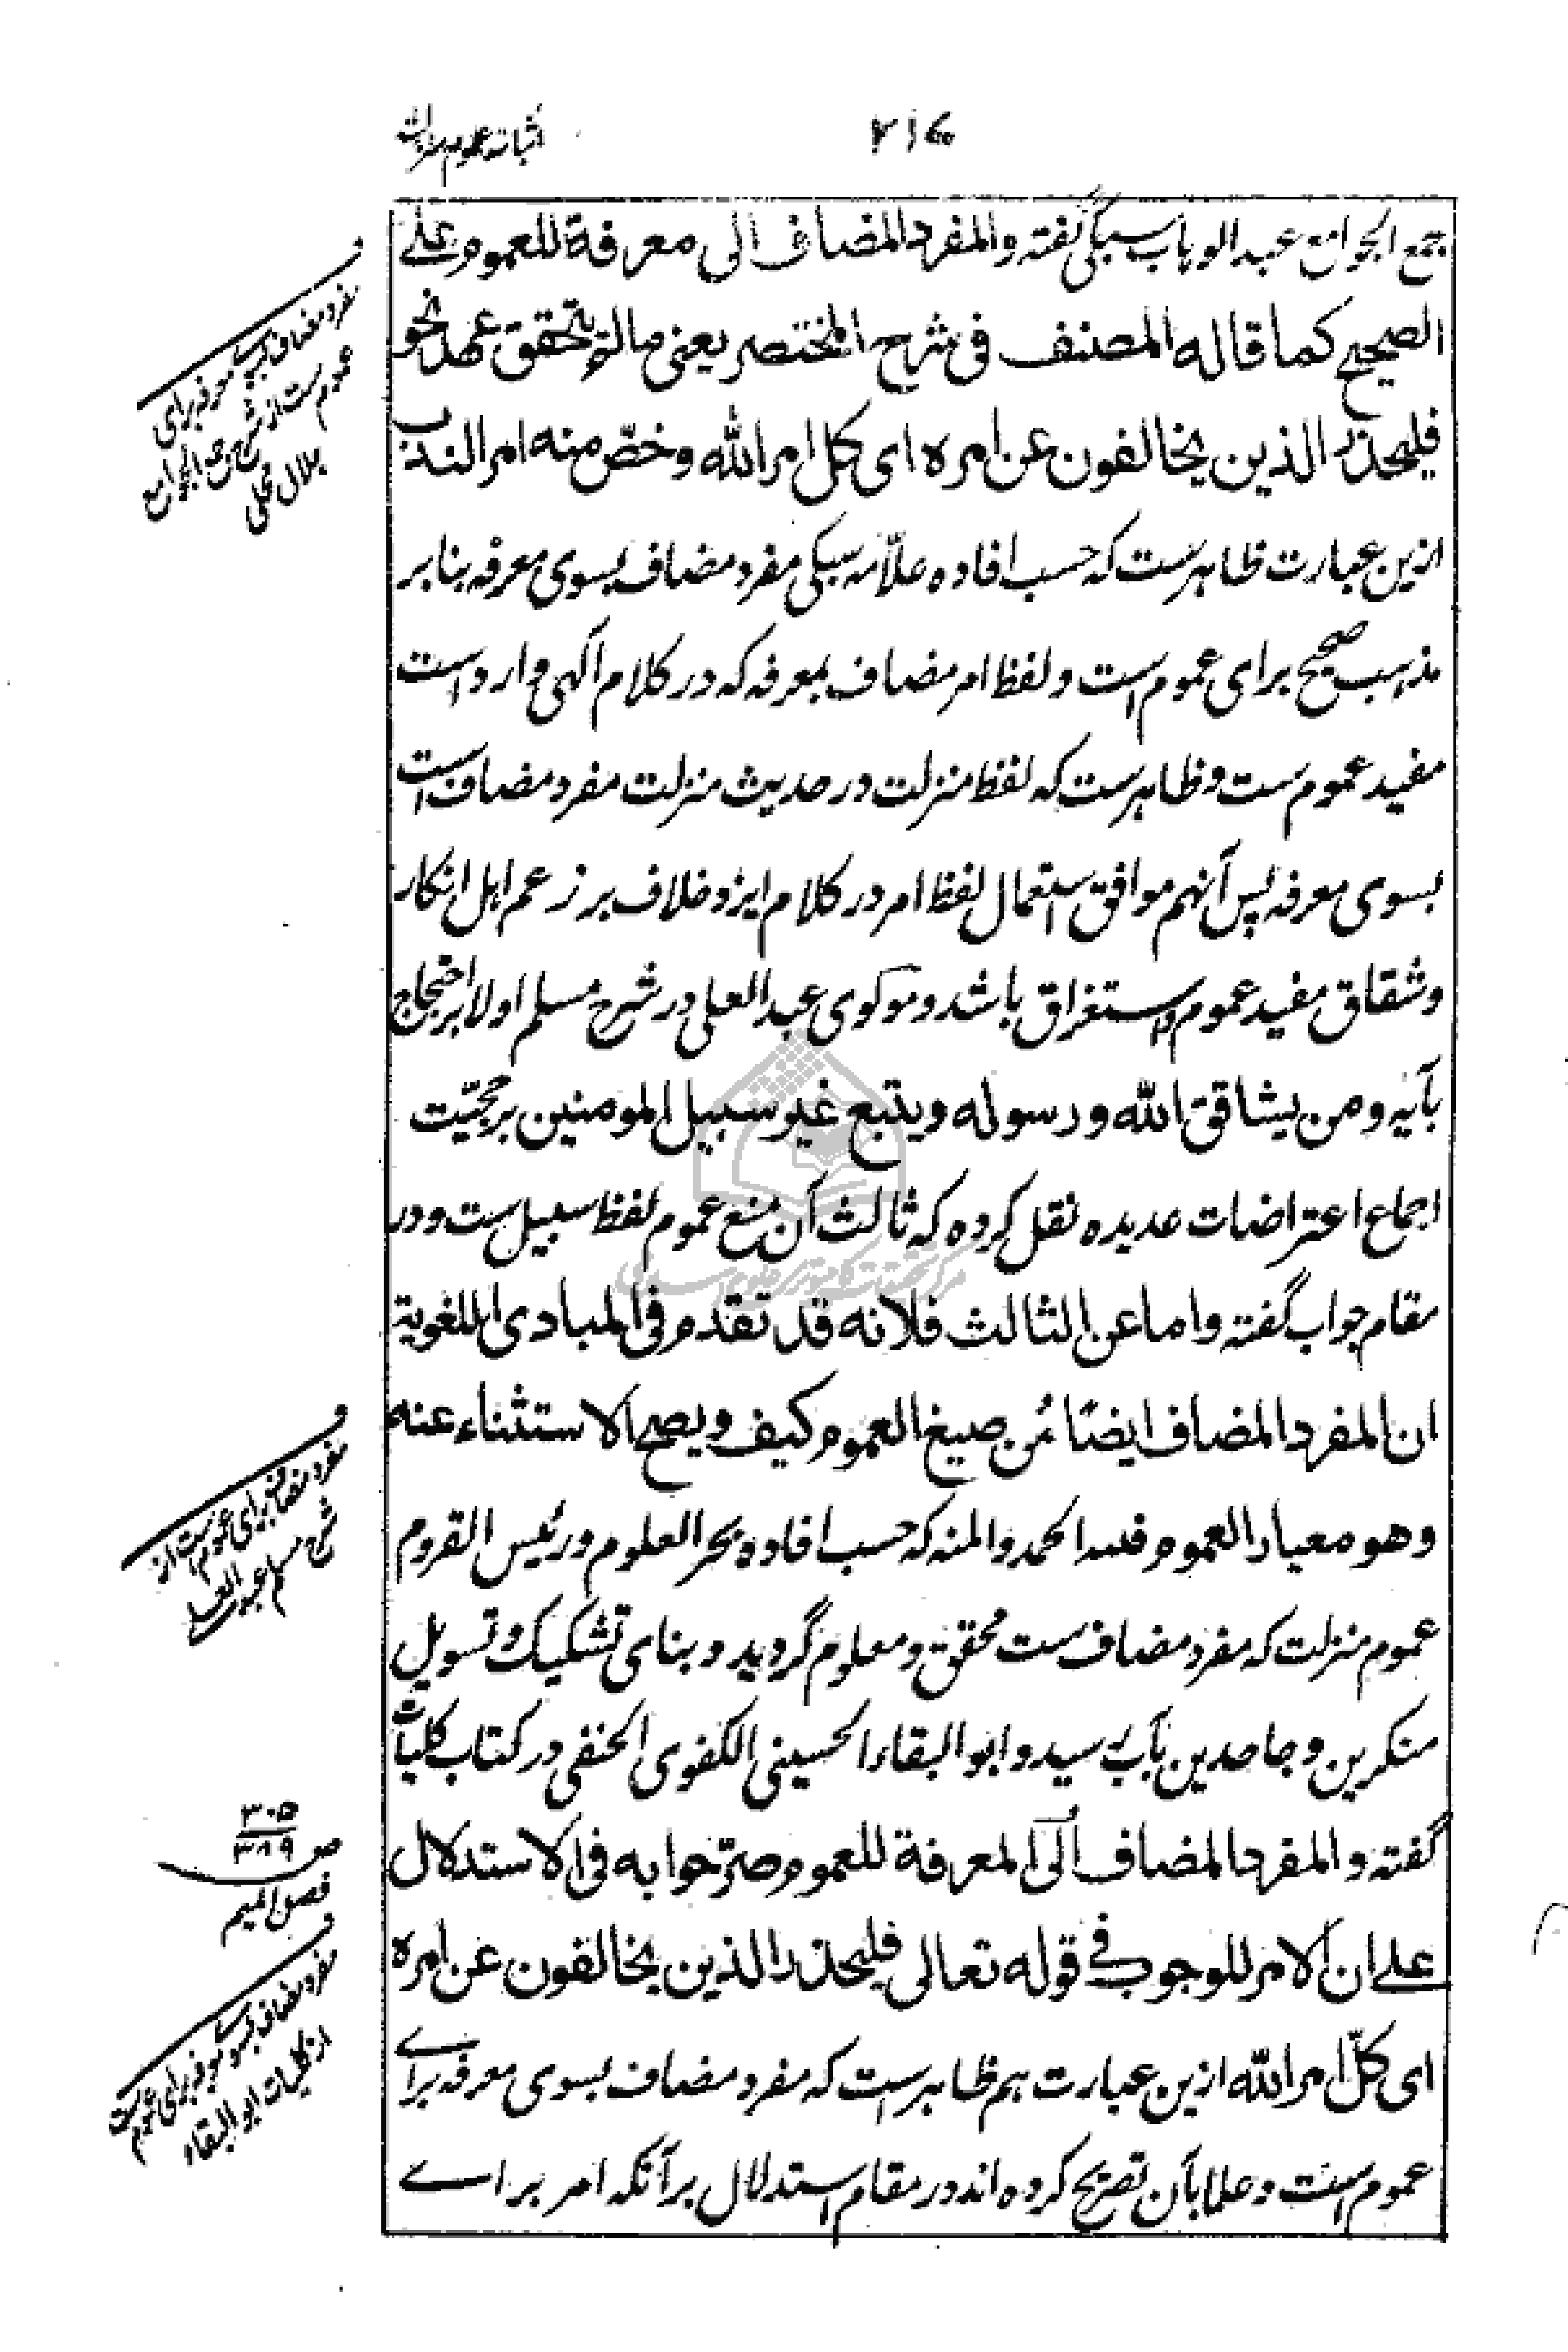 ۲۱۷
اثبات عموم منزلت
جمع الجوامع عبد الوہاب سبکی گفته والمفرد المضاف الی معرفة للعموم علے
الصحیح کما قاله المصنف فی شرح المختصر یعنی مالم یتحقق عهد نحو
فلیحذر الذین یخالفون عن امره ای کل امر الله وخصّ منه امر الندب
ازین عبارت ظاہرست که حسب افاده علّامه سبکی مفرد مضاف بسوی معرفه بنابر
مذہب صحیح برای عموم است و لفظ امر مضاف بمعرفه که در کلام آلهی وارد است
مفید عموم ست و ظاہرست که لفظ منزلت در حدیث منزلت مفرد مضاف است
بسوی معرفه پس آنهم موافق استعمال لفظ امر در کلام ایزد خلاف بر زعم اہل انکار
و شقاق مفید عموم و استغراق باشد و مولوی عبد العلی در شرح مسلم اولا بر احتجاج
بآیه ومن یشاقق الله ورسوله ویتبع غیر سبیل المومنین بر حجیّت
اجماع اعتراضات عدیده نقل کرده که ثالث آن منع عموم لفظ سبیل ست و در
مقام جواب گفته واما عن الثالث فلانه قد تقدم فی المبادی اللغویة
ان المفرد المضاف ایضًا من صیغ العموم کیف ویصح الاستثناء عنه
وهو معیار العموم فلله الحمد والمنه که حسب افاده بحر العلوم و رئیس القروم
عموم منزلت که مفرد مضاف ست محقق و معلوم گردید و بنای تشکیک و تسویل
منکرین و جاحدین بآب رسید و ابو البقاء الحسینی الکفوی الحنفی در کتاب کلیات
گفته والمفرد المضاف الی المعرفة للعموم صرّحوا به فی الاستدلال
علے ان الامر للوجوب فی قوله تعالی فلیحذر الذین یخالفون عن امره
ای کلّ امر الله ازین عبارت ہم ظاہرست که مفرد مضاف بسوی معرفه براے
عموم است و علما بآن تصریح کرده اند در مقام استدلال بر آنکه امر براے
ف
مفرد مضاف بسوی معرفه برای
عموم ست از شرح جمع الجوامع
جلال محلی
ف
مفرد مضاف برای عموم ست از
شرح مسلم عبد العلے
۳۰۵
ص ۳۸۹
فصل المیم
ف
مفرد مضاف بسوے معرفه برای عموم ست
از کلیات ابو البقاء